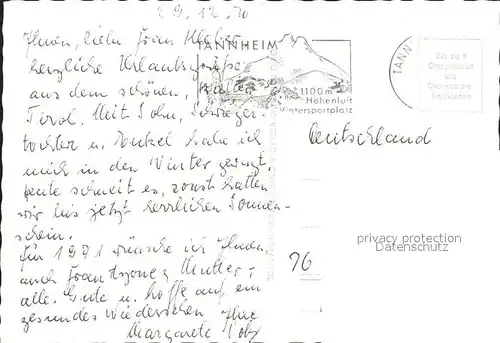 29.12.70
Ihnen, liebe Frau
herzliche Urlaubsgrüße
aus dem schönen,
Tirol. Mit Sohn, Schwieger-
tochter u. Enkel habe ich
mich in den Winter gewagt,
heute schneit es, sonst hatten
wir bis jetzt herrlichen Sonnen-
schein.
Für 1971 wünsche ich Ihnen
auch Mutter,
alles Gute u. hoffe auf ein
gesundes Wiedersehen Ihre
Margarete
TANNHEIM
1100m
Höhenluft
Wintersportplatz
TANN
Deutschland
privacy protection
Datenschutz
76